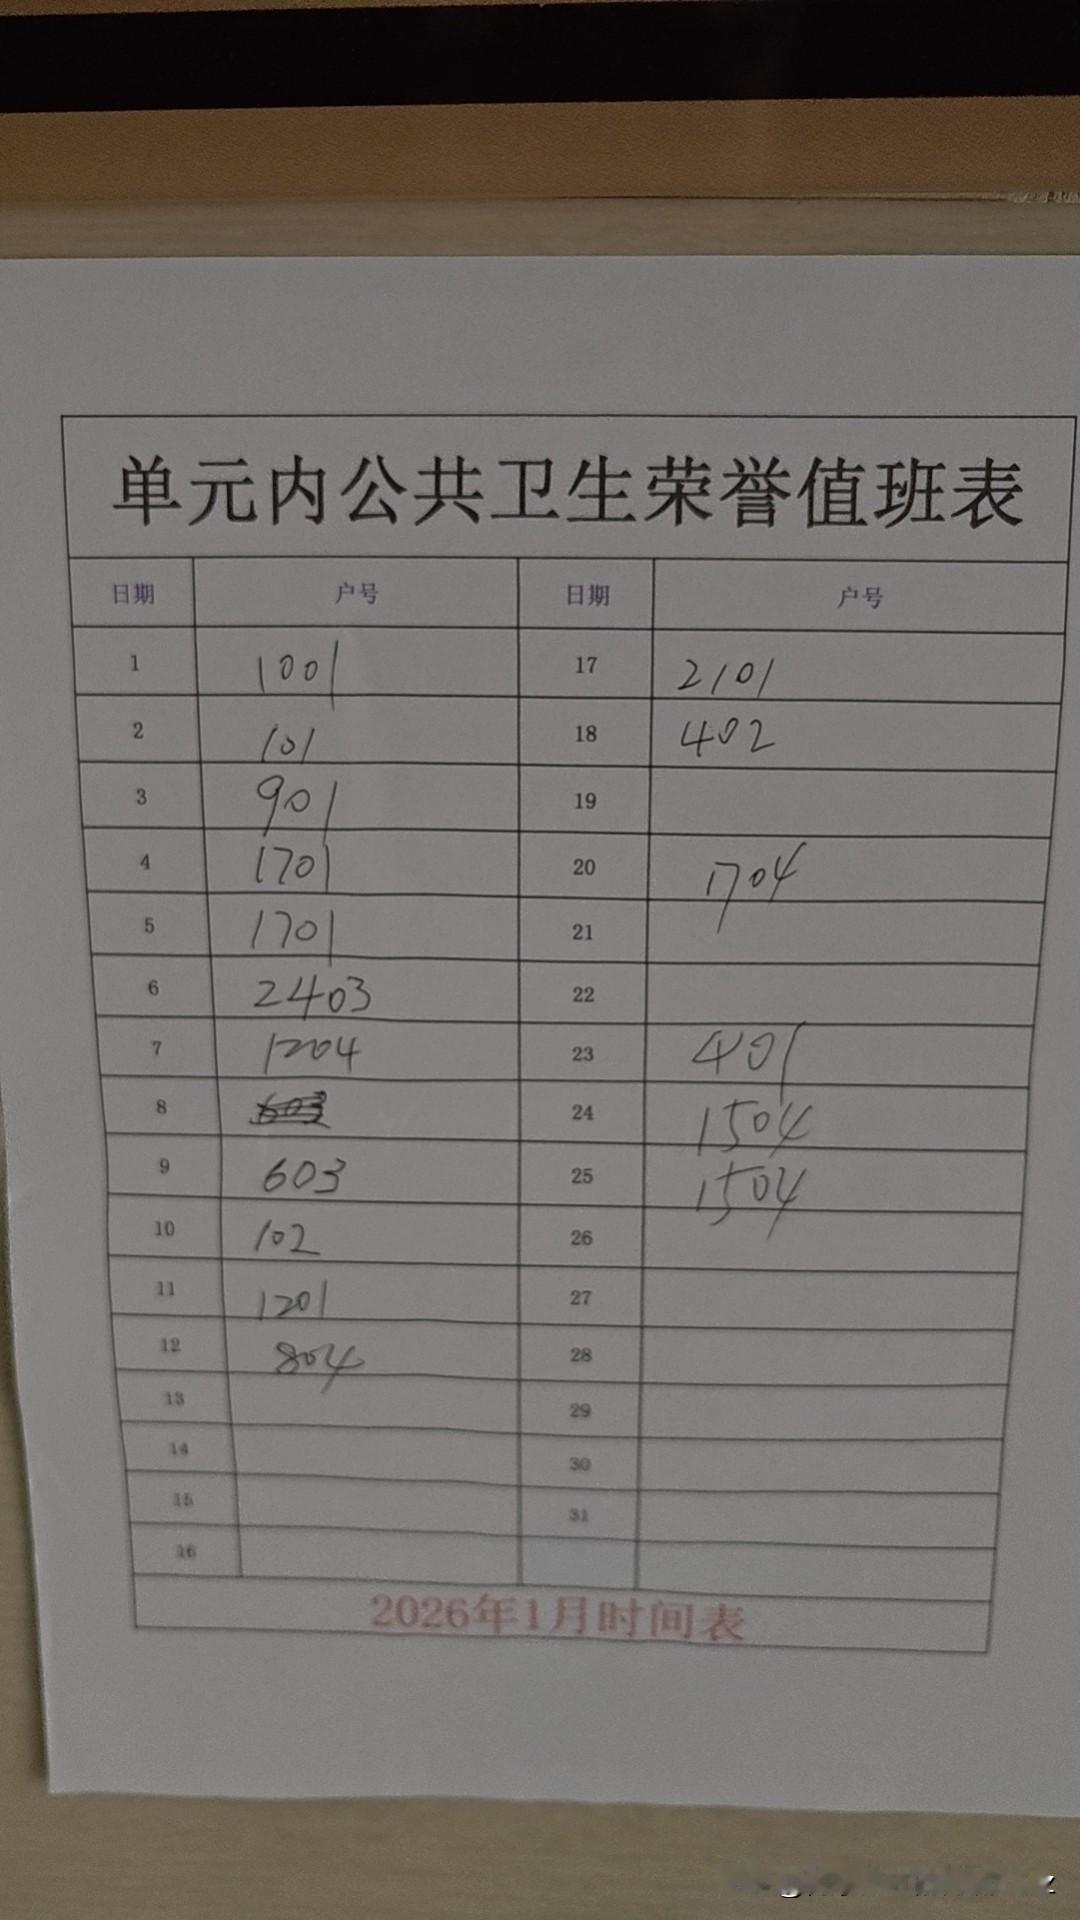 单元内公共卫生荣誉值班表
日期 户号 日期 户号
1 1001 17 2101
2 101 18 402
3 901 19
4 1701 20 1704
5 1701 21
6 2403 22
7 1204 23 401
8 603 24 1504
9 603 25 1504
10 102 26
11 1201 27
12 804 28
13 29
14 30
15 31
16
2026年1月时间表